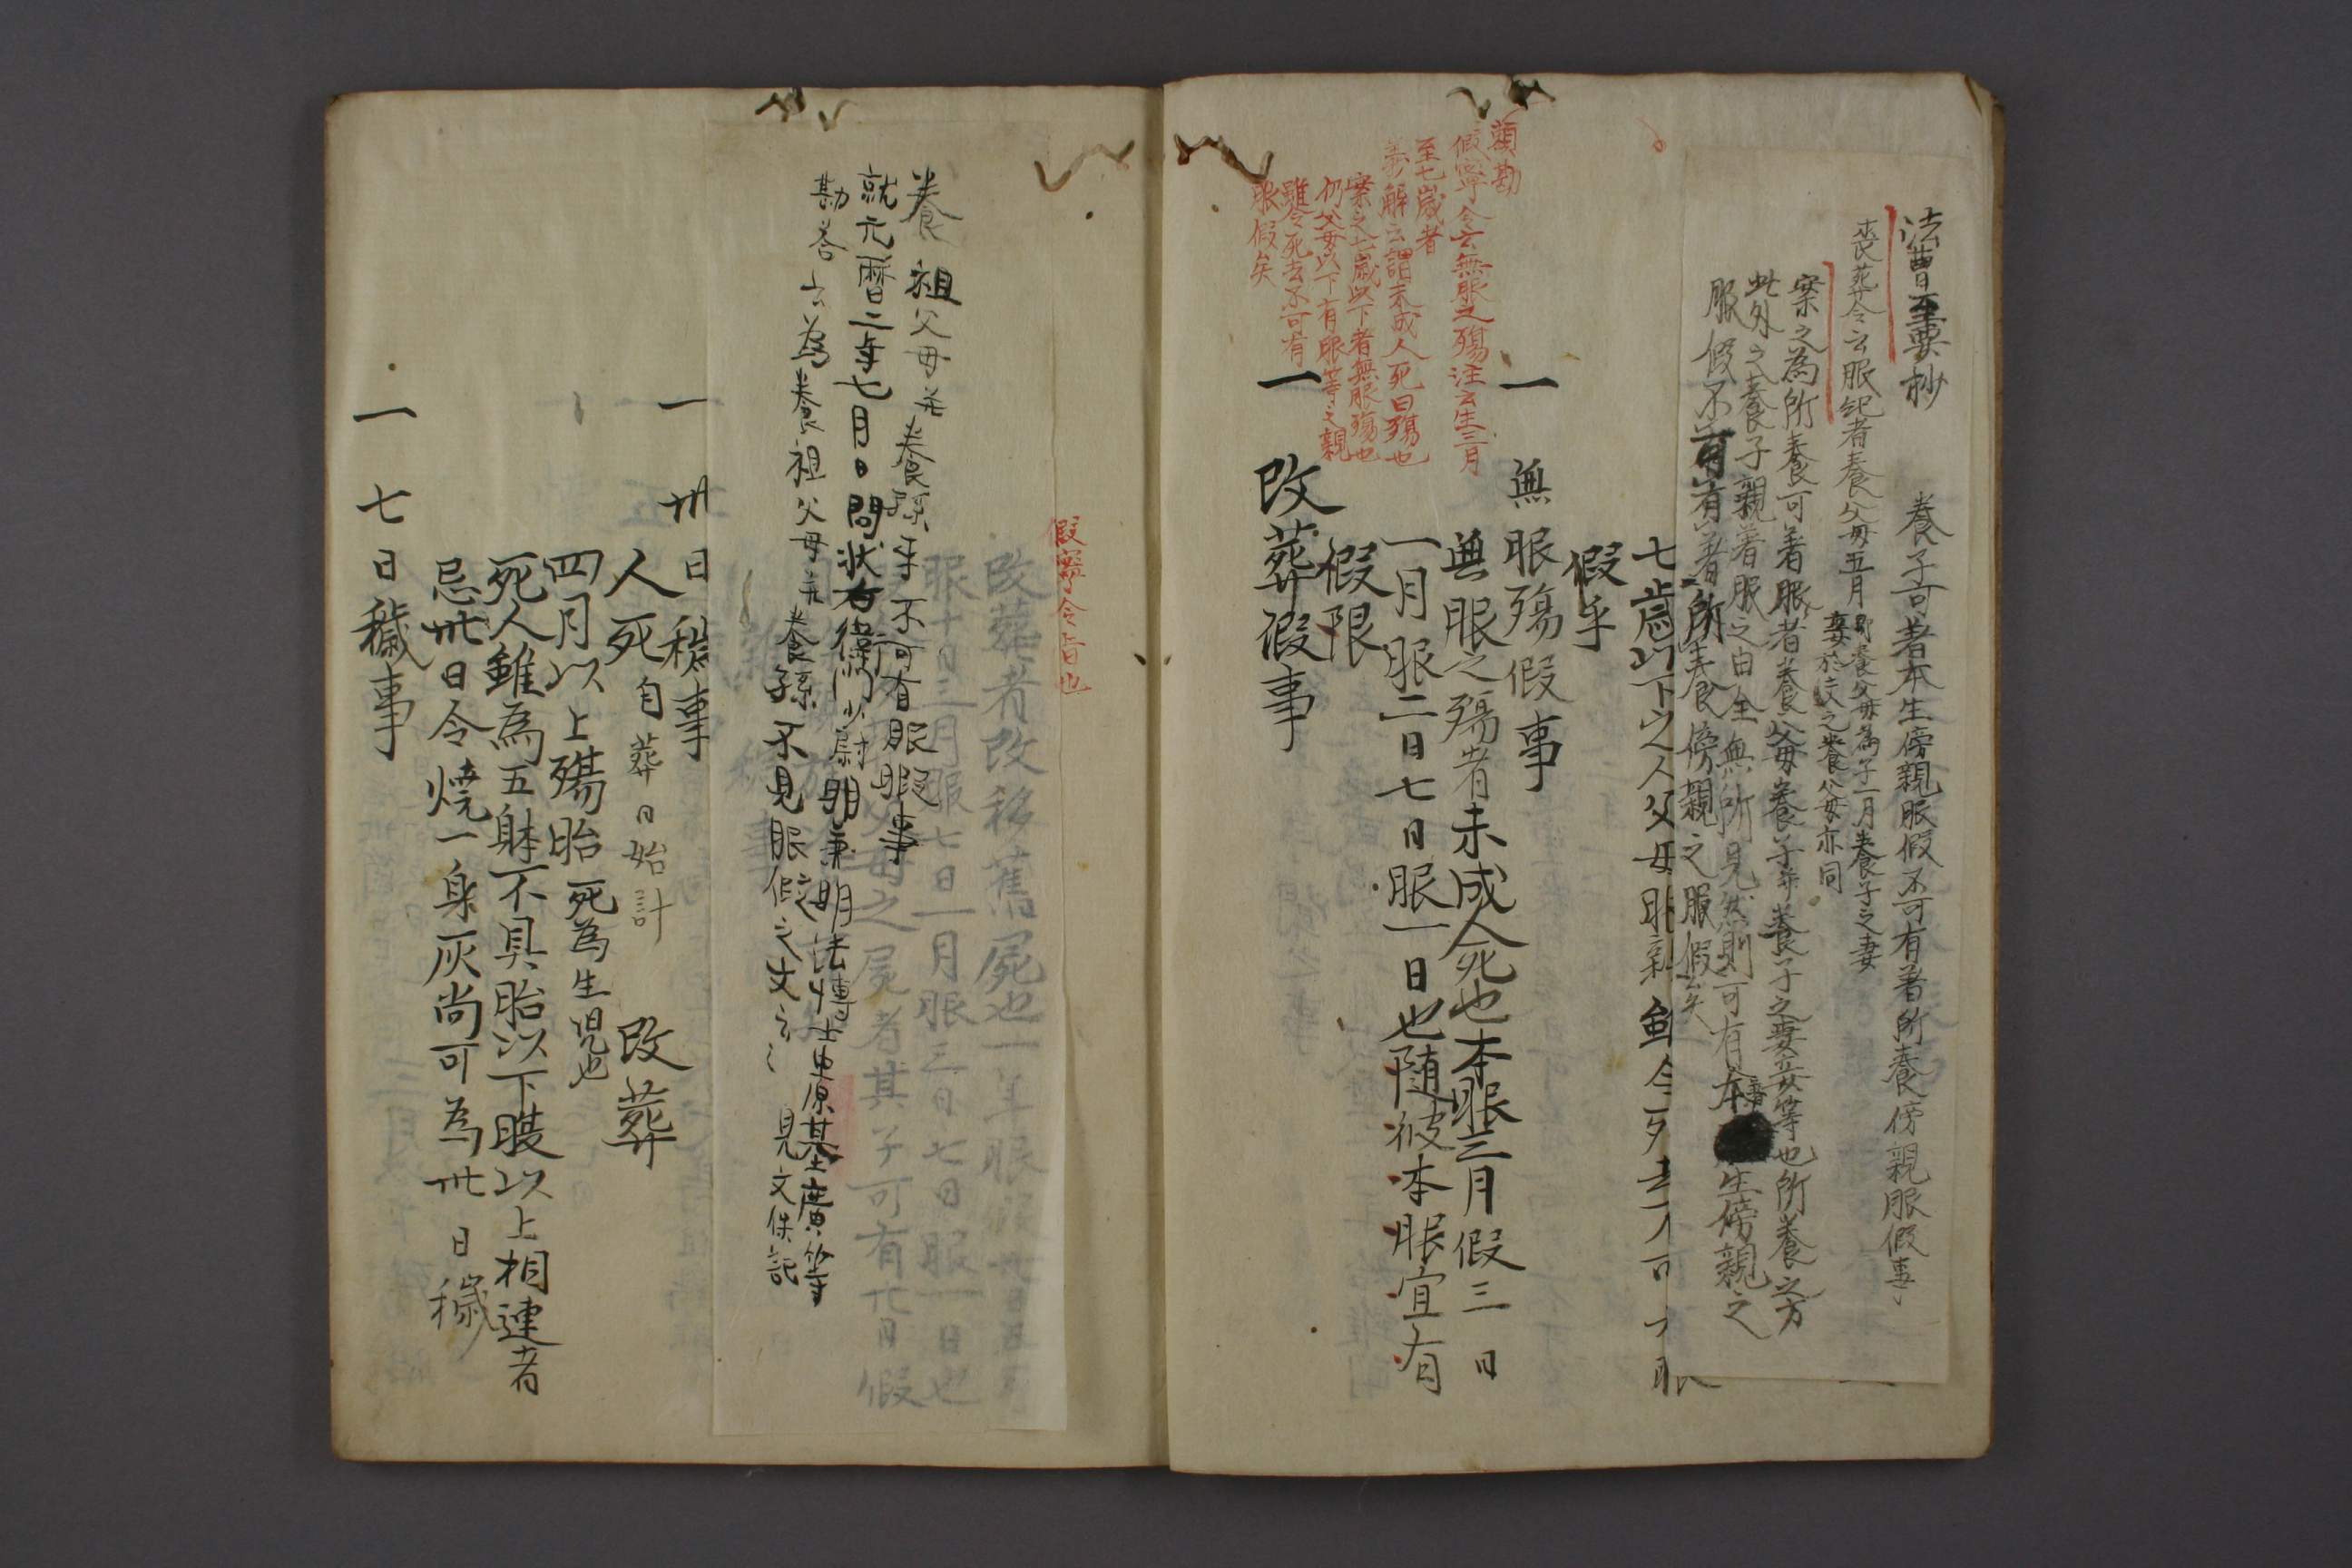 法曹至要抄
養子可著本生傍親服假不可有著所養傍親服假事
喪葬令云服紀者養父母五月
即養父母為子一月養子之妻
妻於夫之養父母亦同
案之為所養可著服者養父母養子并養子之妻妾等也所養之方
此外之養子親著服之由全無所見然則可有著本生傍親之
服假不可有著所養傍親之服假云矣
七歳以下之人父母
假乎
一 無服殤假事
無服之殤者未成人死也本服三月假三日
一月服二日七日服一日也随彼本服宜有
假限
一 改葬假事
頭勘
假寧令云無服之殤注云生三月
至七歳者
義解云謂未成人死曰殤也
案之七歳以下者無服殤也
仍父母以下有服等之親
雖令死去不可有
服假矣
假寧令旨也
改葬者改移舊屍也一年服假廿日五月
服十日三月服七日一月服三日七日服一日也
父母之屍者其子可有廿日假
養祖父母并養孫手不可有服暇事
就元暦二年七月日問状右衛門少尉明兼明法博士中原基廣等
勘答云為養祖父母并養孫不見服假之文云々 見文保記
一 卅日穢事
人死自葬日始計 改葬
四月以上殤胎死為生児也
死人雖為五躰不具胎以下腰以上相連者
忌卅日令燒一身灰尚可為卅日穢
一 七日穢事